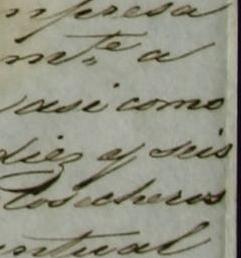 mpresa
mte a
asi como
diez y seis
Cosecheros
ntual